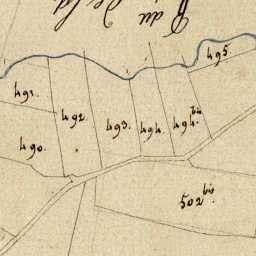 495
491.
492
493
494
494.bis
490.
502bis